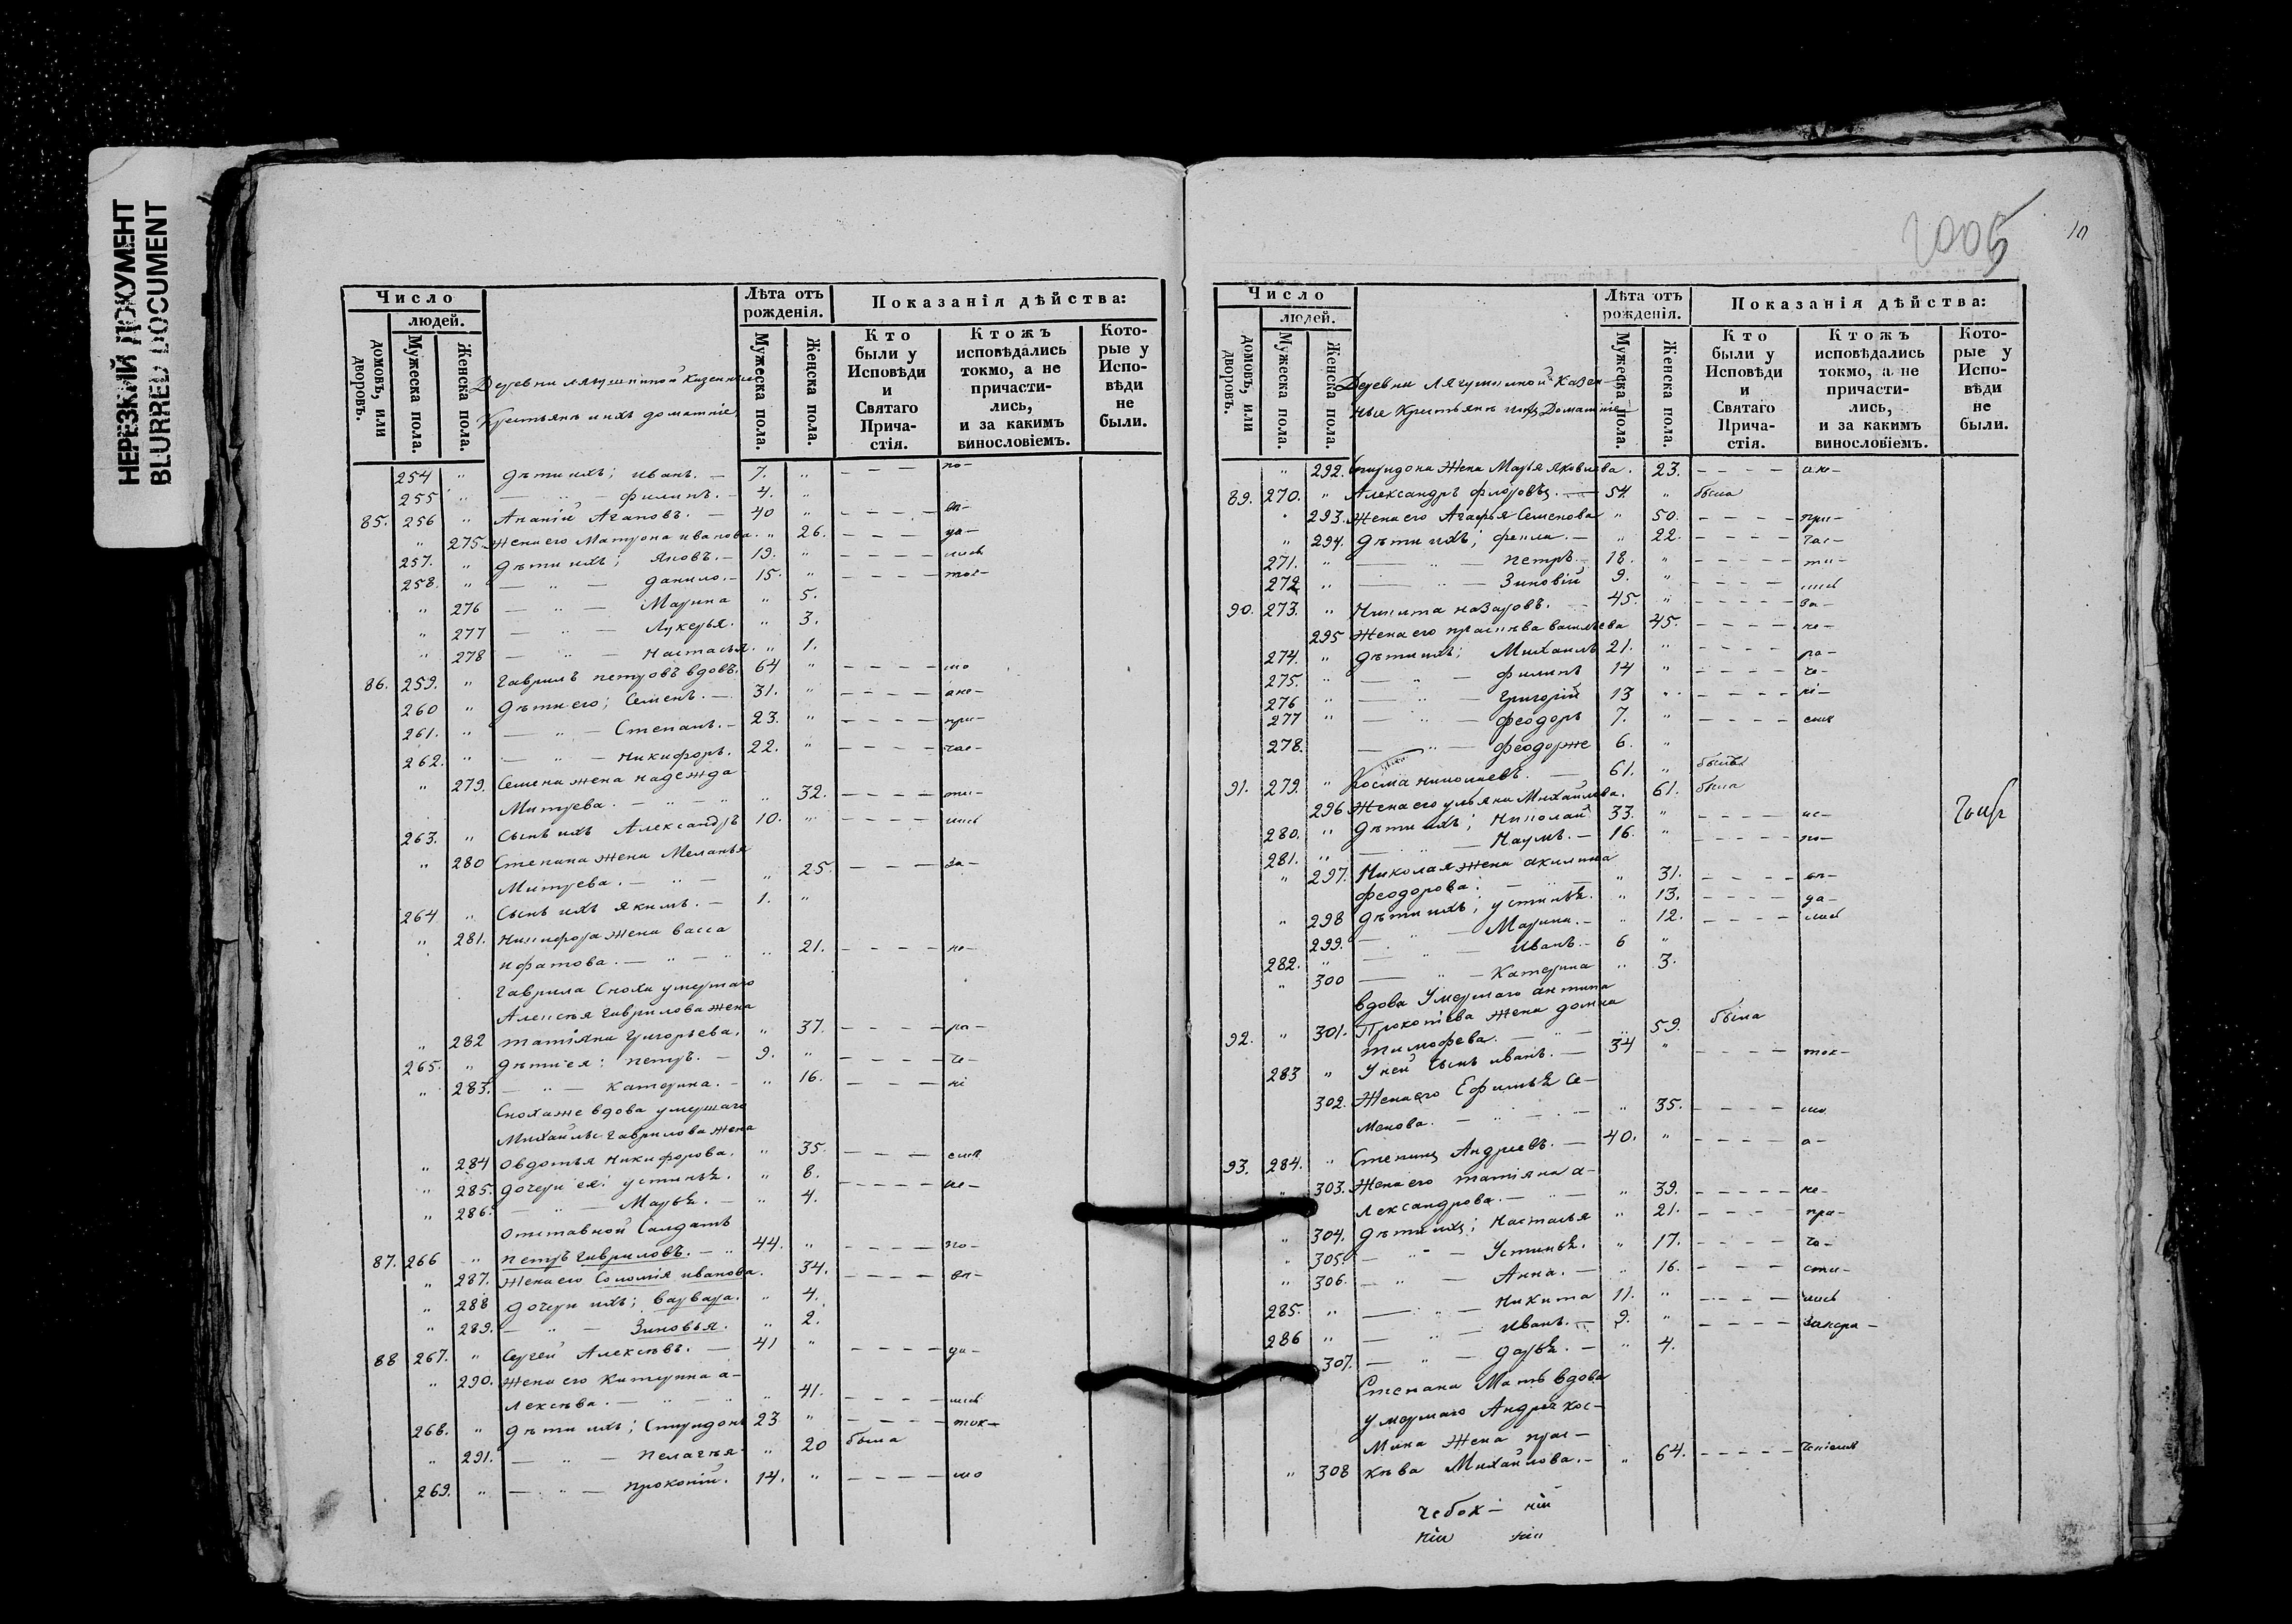 НЕРЕЗКИЙ ДОКУМЕНТ
BLURRED DOCUMENT
Число
людей.
домовъ, или дворовъ.
Мужеска пола.
Женска пола.
Деревни Лягушиной Казенные
Крестьяне и ихъ домашніе
Лѣта отъ рожденія.
Мужеска пола.
Женска пола.
Показанія дѣйства:
Кто были у Исповѣди и Святаго Прича-стія.
Ктожъ исповѣдались токмо, а не причасти-лись, и за какимъ винословіемъ.
Кото-рые у Испо-вѣди не были.
254 " дѣти ихъ; иванъ. — 7. " – – – по-
255 " — " — филипъ. - 4. "
85. 256 " Ананій Агаповъ. — 40 " – – – – вѣ-
" 275. Жена его Матрона иванова. " 26. – – – да-
257. " дѣти ихъ; Яковъ. — 19. " – – – – лись
258. " — " — данило. — 15. " – – – – ток-
" 276 — " — Марина " 5.
" 277 — " — Лукерья. " 3.
" 278 — " — настасья. " 1.
86. 259. " гаврилъ петровъ вдовъ. 64 " – – – – мо
260 " дѣти его; Семенъ. — 31. " – – – – ане-
261. " — " — Степанъ. - 23. " – – – – при-
262. " — " — никифоръ. 22. " – – – – час-
" 279. Семена жена надежда
Митрева. — " — " " 32. – – – – ти-
263. " Сынъ ихъ Александръ 10. " – – – – лись
" 280 Степана жена Меланья
Митрева. — " — " 25. – – – – за-
264 " Сынъ ихъ якимъ. — 1. "
" 281. никифора жена васса
" 21. – – – – не-
гаврила Сноха умершаго
Алексѣя гаврилова жена
" 282 татіяна григорьева. " 37. – – – – ра-
265. " дѣти ея: петръ. — 9. " – – – – че-
" 283. — " — катерина. - " 16. – – – – ні
Сноха же вдова умершаго
Михайлы гаврилова жена
" 284 овдотья никифорова. " 35. – – – емъ
" 285. дочери ея: устинья. " 8. – – – – ис-
" 286. — " — Марья. — " 4.
отставной Салдатъ
87. 266 " петръ гавриловъ. — " 44. " – – – – по-
" 287. жена его Соломія иванова. 34. – – – – вѣ-
" 288 дочери ихъ; варвара. " 4.
" 289. — " — Зиновья. " 2.
88 267. " Сергей Алексѣвъ. — 41 " – – – – да-
" 290. жена его катерина а-
лексѣва. — " — " 41. – – – – лись
268. " дѣти ихъ; Спиридонъ 23 " – – – – ток-
" 291. — " — пелагѣя " 20 была
269. " — " — прокопій. 14. " – – – – мо
2006
10
Число
людей.
домовъ, или дворовъ.
Мужеска пола.
Женска пола.
Деревни Лягушиной Казен-
ные Крестьяне и ихъ Домашніе
Лѣта отъ рожденія.
Мужеска пола.
Женска пола.
Показанія дѣйства:
Кто были у Исповѣди и Святаго Прича-стія.
Ктожъ исповѣдались токмо, а не причасти-лись, и за какимъ винословіемъ.
Кото-рые у Испо-вѣди не были.
" 292. Спиридона жена Марья яковлева. 23. – – – – ане-
89. 270. " Александръ флоровъ. — 54. " была
" 293. жена его Агафья Семенова " 50. – – – – при-
" 294. дѣти ихъ; фекла. — " 22. – – – – час-
271. " — " — петръ. — 18. " – – – – ти-
272 " — " — Зиновій 9. " – – – – лись
90. 273. " Никита назаровъ. — 45. " – – – – за-
295 жена его прасковья васильева 45. – – – – не-
274. " дѣти ихъ; Михаилъ 21. " – – – – ра-
275. " — " — филипъ 14 " – – – – че-
276 " — " — Григорій 13 " – – – – ні-
277 " — " — феодоръ 7. " – – – – емъ
278. — " — феодоръ же 6. "
91. 279. " Косма николаевъ. — 61. " былъ
296 жена его ульяна Михайлова. 61. была
280. " дѣти ихъ; Николай 33. " – – – – ис-
281. " — " — Наумъ. — 16. " – – – – по-
" 297. Николая жена акилина
феодорова: — " — " 31. – – – – вѣ-
" 298 дѣти ихъ; устинья. " 13. – – – – да-
299. — " — Марина. — " 12. – – – – лись
282. " — " — иванъ. — 6 "
" 300 — " — Катерина " 3.
вдова Умершаго антипа
92. " 301. Прокопіева жена домна
тимофева. — " — " 59. была
283 " У ней сынъ иванъ. — 34 " – – – – ток-
302. жена его Ефимья Се-
менова. — " — " 35. – – – – мо
93. 284. " Степанъ Андреевъ. — 40. " – – – – а-
" 303. жена его татіяна а-
лександрова. — " — " 39. – – – – не-
" 304. дѣти ихъ; Настасья " 21. – – – – при-
" 305. — " — Устинья. " 17. – – – – ча-
" 306. — " — Анна. — " 16. – – – сти-
285. " — " — никита 11. " – – – – лись
286 " — " — иванъ. — 9. " – – – – занера-
307. — " — дарья. — " 4.
Степана Мать вдова
умершаго Андрея кос-
мина жена прас-
" 308 кѣва Михайлова. — " 64. – – – – ченіемъ